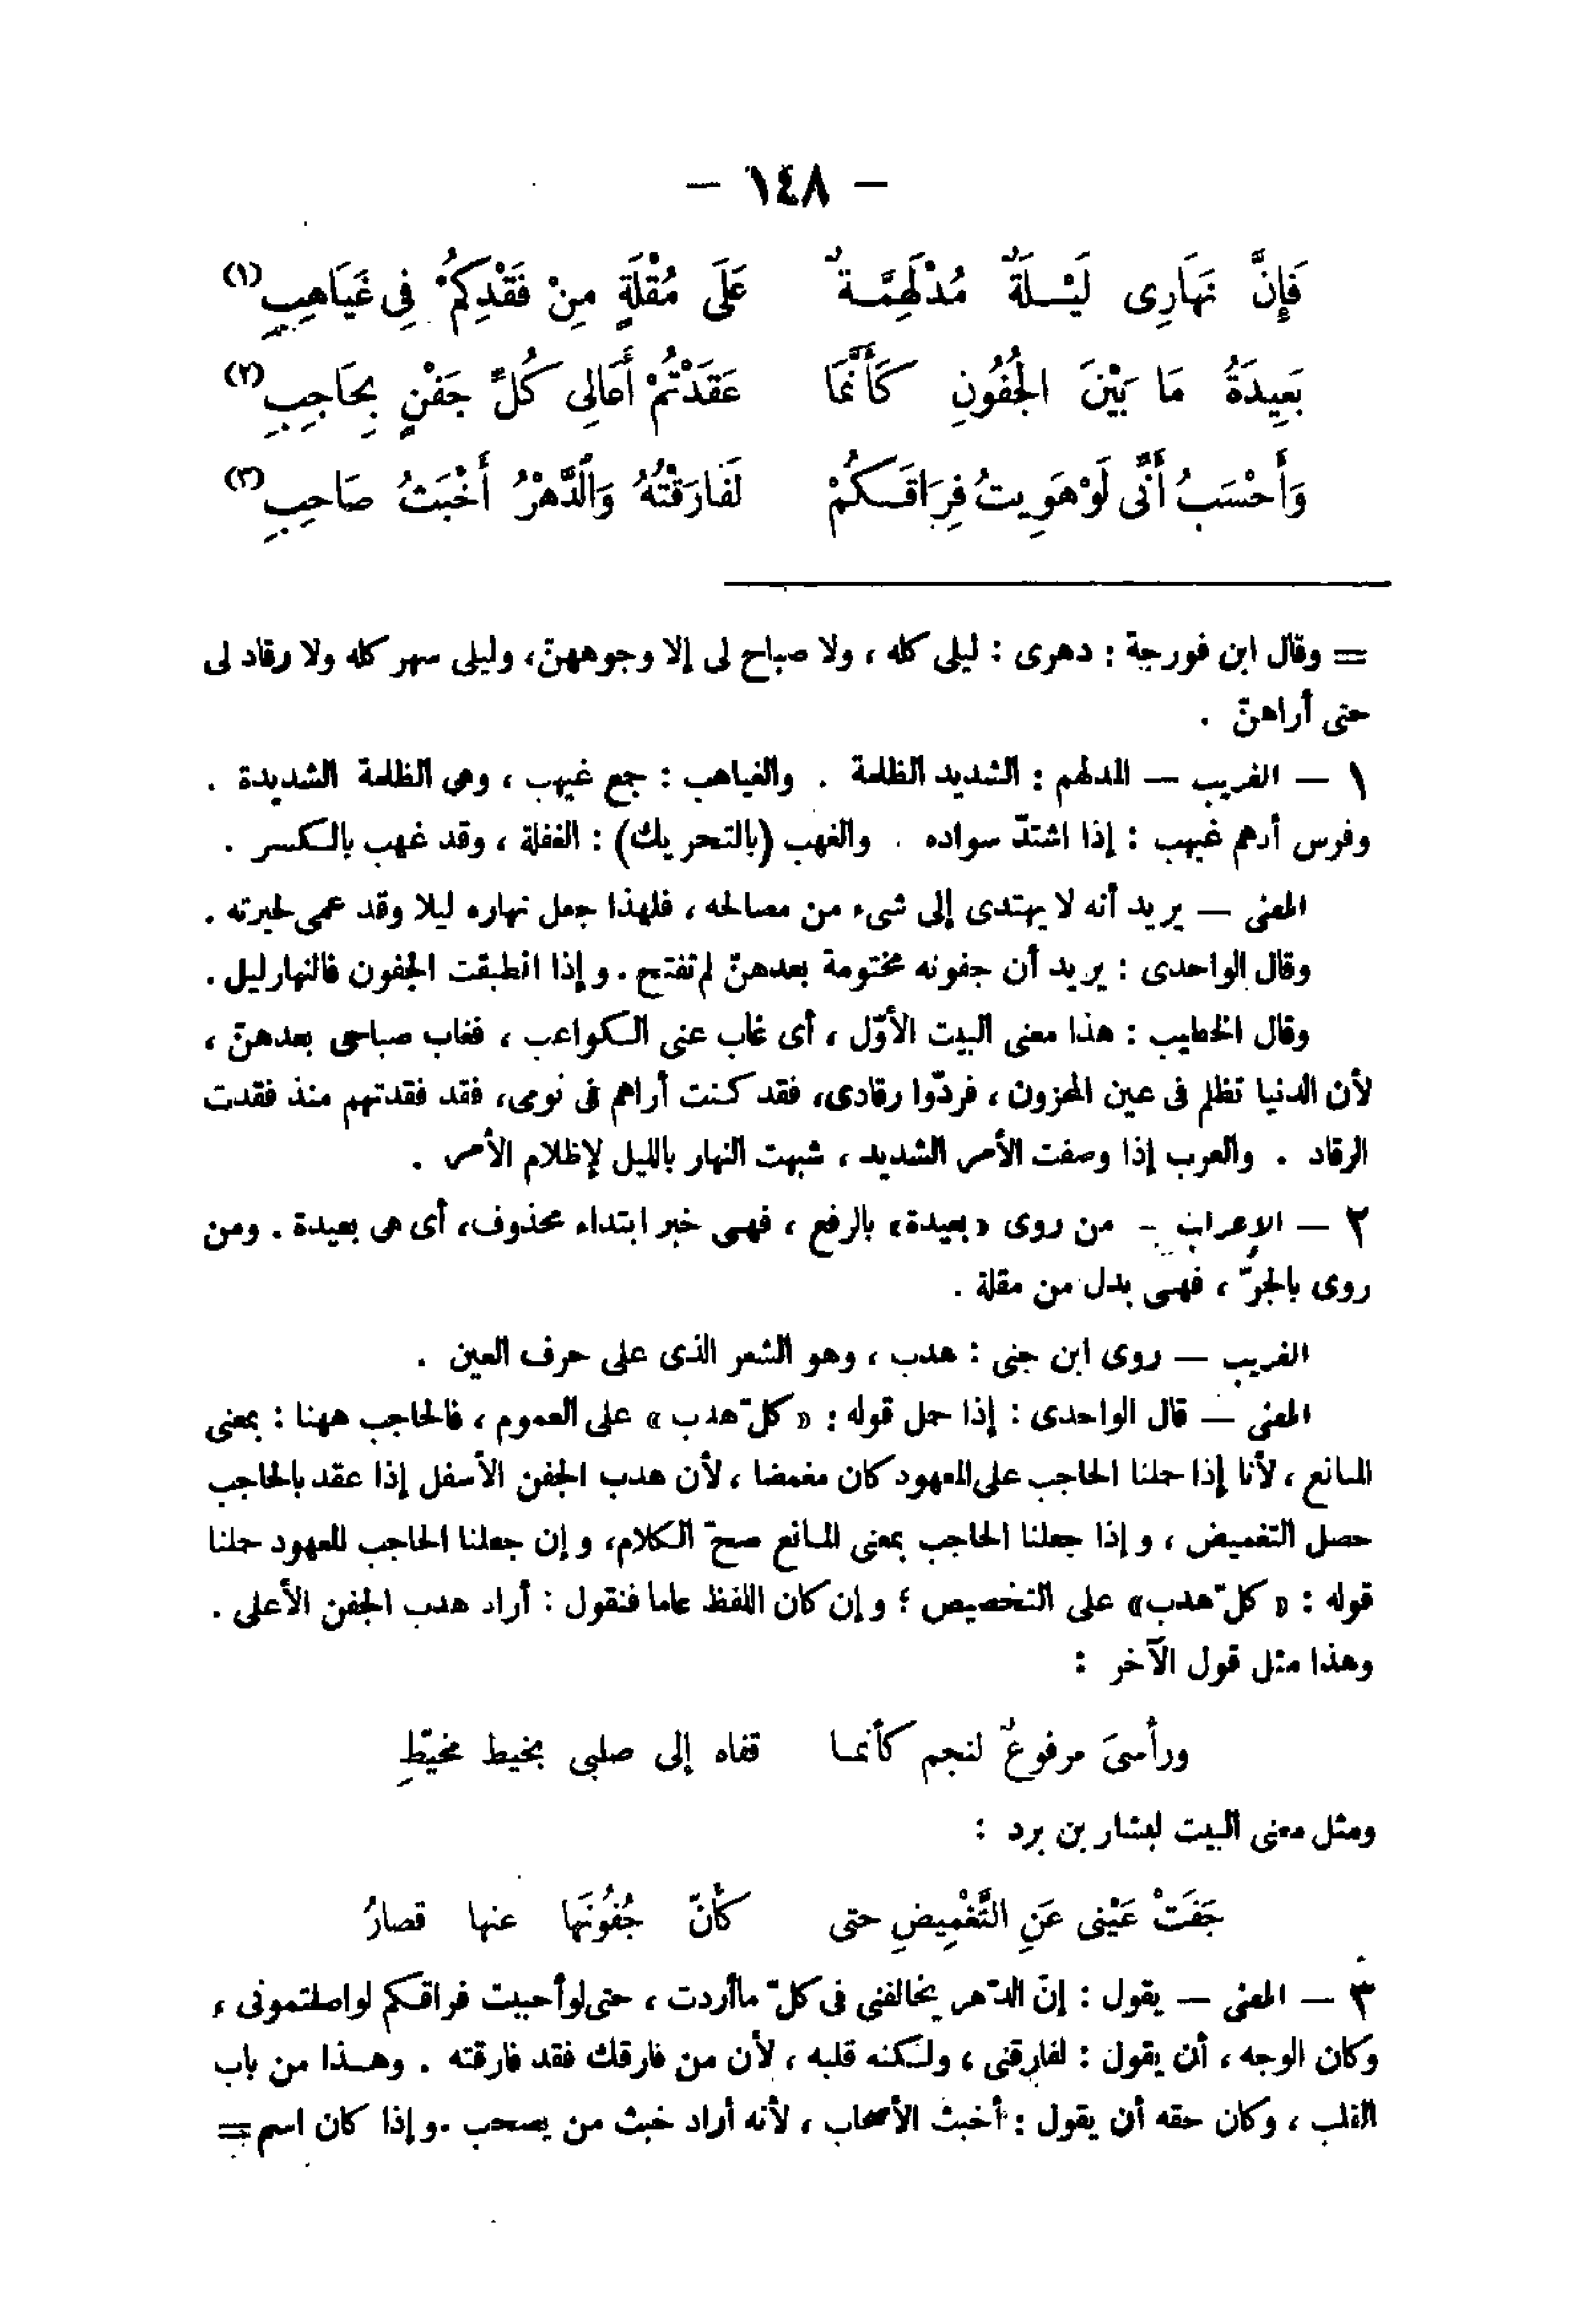 – ١٤٨ –
فَإِنَّ نَهَارِى لَيْـــلَةٌ مُدْلَهِمَّـةٌ عَلَى مُقْلَةٍ مِنْ فَقْدِكُمْ فِى غَيَاهِبِ (١)
بَعِيدَةُ مَا بَيْنَ الْجُفُونِ كَأَنَّمَا عَقَدْتُمْ أَعَالِى كُلِّ جَفْنٍ بِحَاجِبِ (٢)
وَأَحْسَبُ أَنِّى لَوْ هَوِيتُ فِرَاقَـكُمْ لَفَارَقْتُهُ وَالدَّهْرُ أَخْبَثُ صَاحِبِ (٣)
= وقال ابن فورجة : دهرى : ليلى كله ، ولا صباح لى إلا وجوههنّ، وليلى سهر كله ولا رقاد لى
حتى أراهنّ .
١ – الغريب – المدلهم : الشديد الظلمة . والغياهب : جمع غيهب ، وهى الظلمة الشديدة .
وفرس أدهم غيهب : إذا اشتدّ سواده . والغهب (بالتحريك) : الغفلة ، وقد غهب بالـكسر .
المعنى – يريد أنه لا يهتدى إلى شىء من مصالحه ، فلهذا جعل نهاره ليلا وقد عمى لحيرته .
وقال الواحدى : يريد أن جفونه مختومة بعدهنّ لم تفتح . و إذا انطبقت الجفون فالنهار ليل .
وقال الخطيب : هذا معنى البيت الأوّل ، أى غاب عنى الـكواعب ، فغاب صباحى بعدهنّ ،
لأن الدنيا تظلم فى عين المحزون ، فردّوا رقادى، فقد كنت أراهم فى نومى، فقد فقدتهم منذ فقدت
الرقاد . والعرب إذا وصفت الأمر الشديد ، شبهت النهار بالليل لإظلام الأمر .
٢ – الإعراب – من روى «بعيدة» بالرفع ، فهى خبر ابتداء محذوف، أى هى بعيدة . ومن
روى بالجرّ ، فهى بدل من مقلة .
الغريب – روى ابن جنى : هدب ، وهو الشعر الذى على حرف العين .
المعنى – قال الواحدى : إذا حمل قوله : « كلّ هدب » على العموم ، فالحاجب ههنا : بمعنى
المانع ، لأنا إذا حملنا الحاجب على المعهود كان مغمضا ، لأن هدب الجفن الأسفل إذا عقد بالحاجب
حصل التغميض ، و إذا جعلنا الحاجب بمعنى المانع صحّ الـكلام، و إن جعلنا الحاجب المعهود حملنا
قوله : « كلّ هدب» على التخصيص ؛ و إن كان اللفظ عاما فنقول : أراد هدب الجفن الأعلى .
وهذا مثل قول الآخر :
ورأسىَ مرفوعٌ لنجم كأنمـا قفاه إلى صلبى بخيط مخيّطِ
ومثل معنى البيت لبشار بن برد :
جَفَتْ عَيْنى عَنِ التَّغْمِيضِ حتى كأنّ جُفُونَها عنها قصارُ
٣ – المعنى – يقول : إنّ الدّهر يخالفنى فى كلّ ما أردت ، حتى لو أحببت فراقـكم لواصلتمونى ،
وكان الوجه ، أن يقول : لفارقنى ، ولـكنه قلبه ، لأن من فارقك فقد فارقته . وهـذا من باب
القلب ، وكان حقه أن يقول : أخبث الأصحاب ، لأنه أراد خبث من يصحب . و إذا كان اسم =